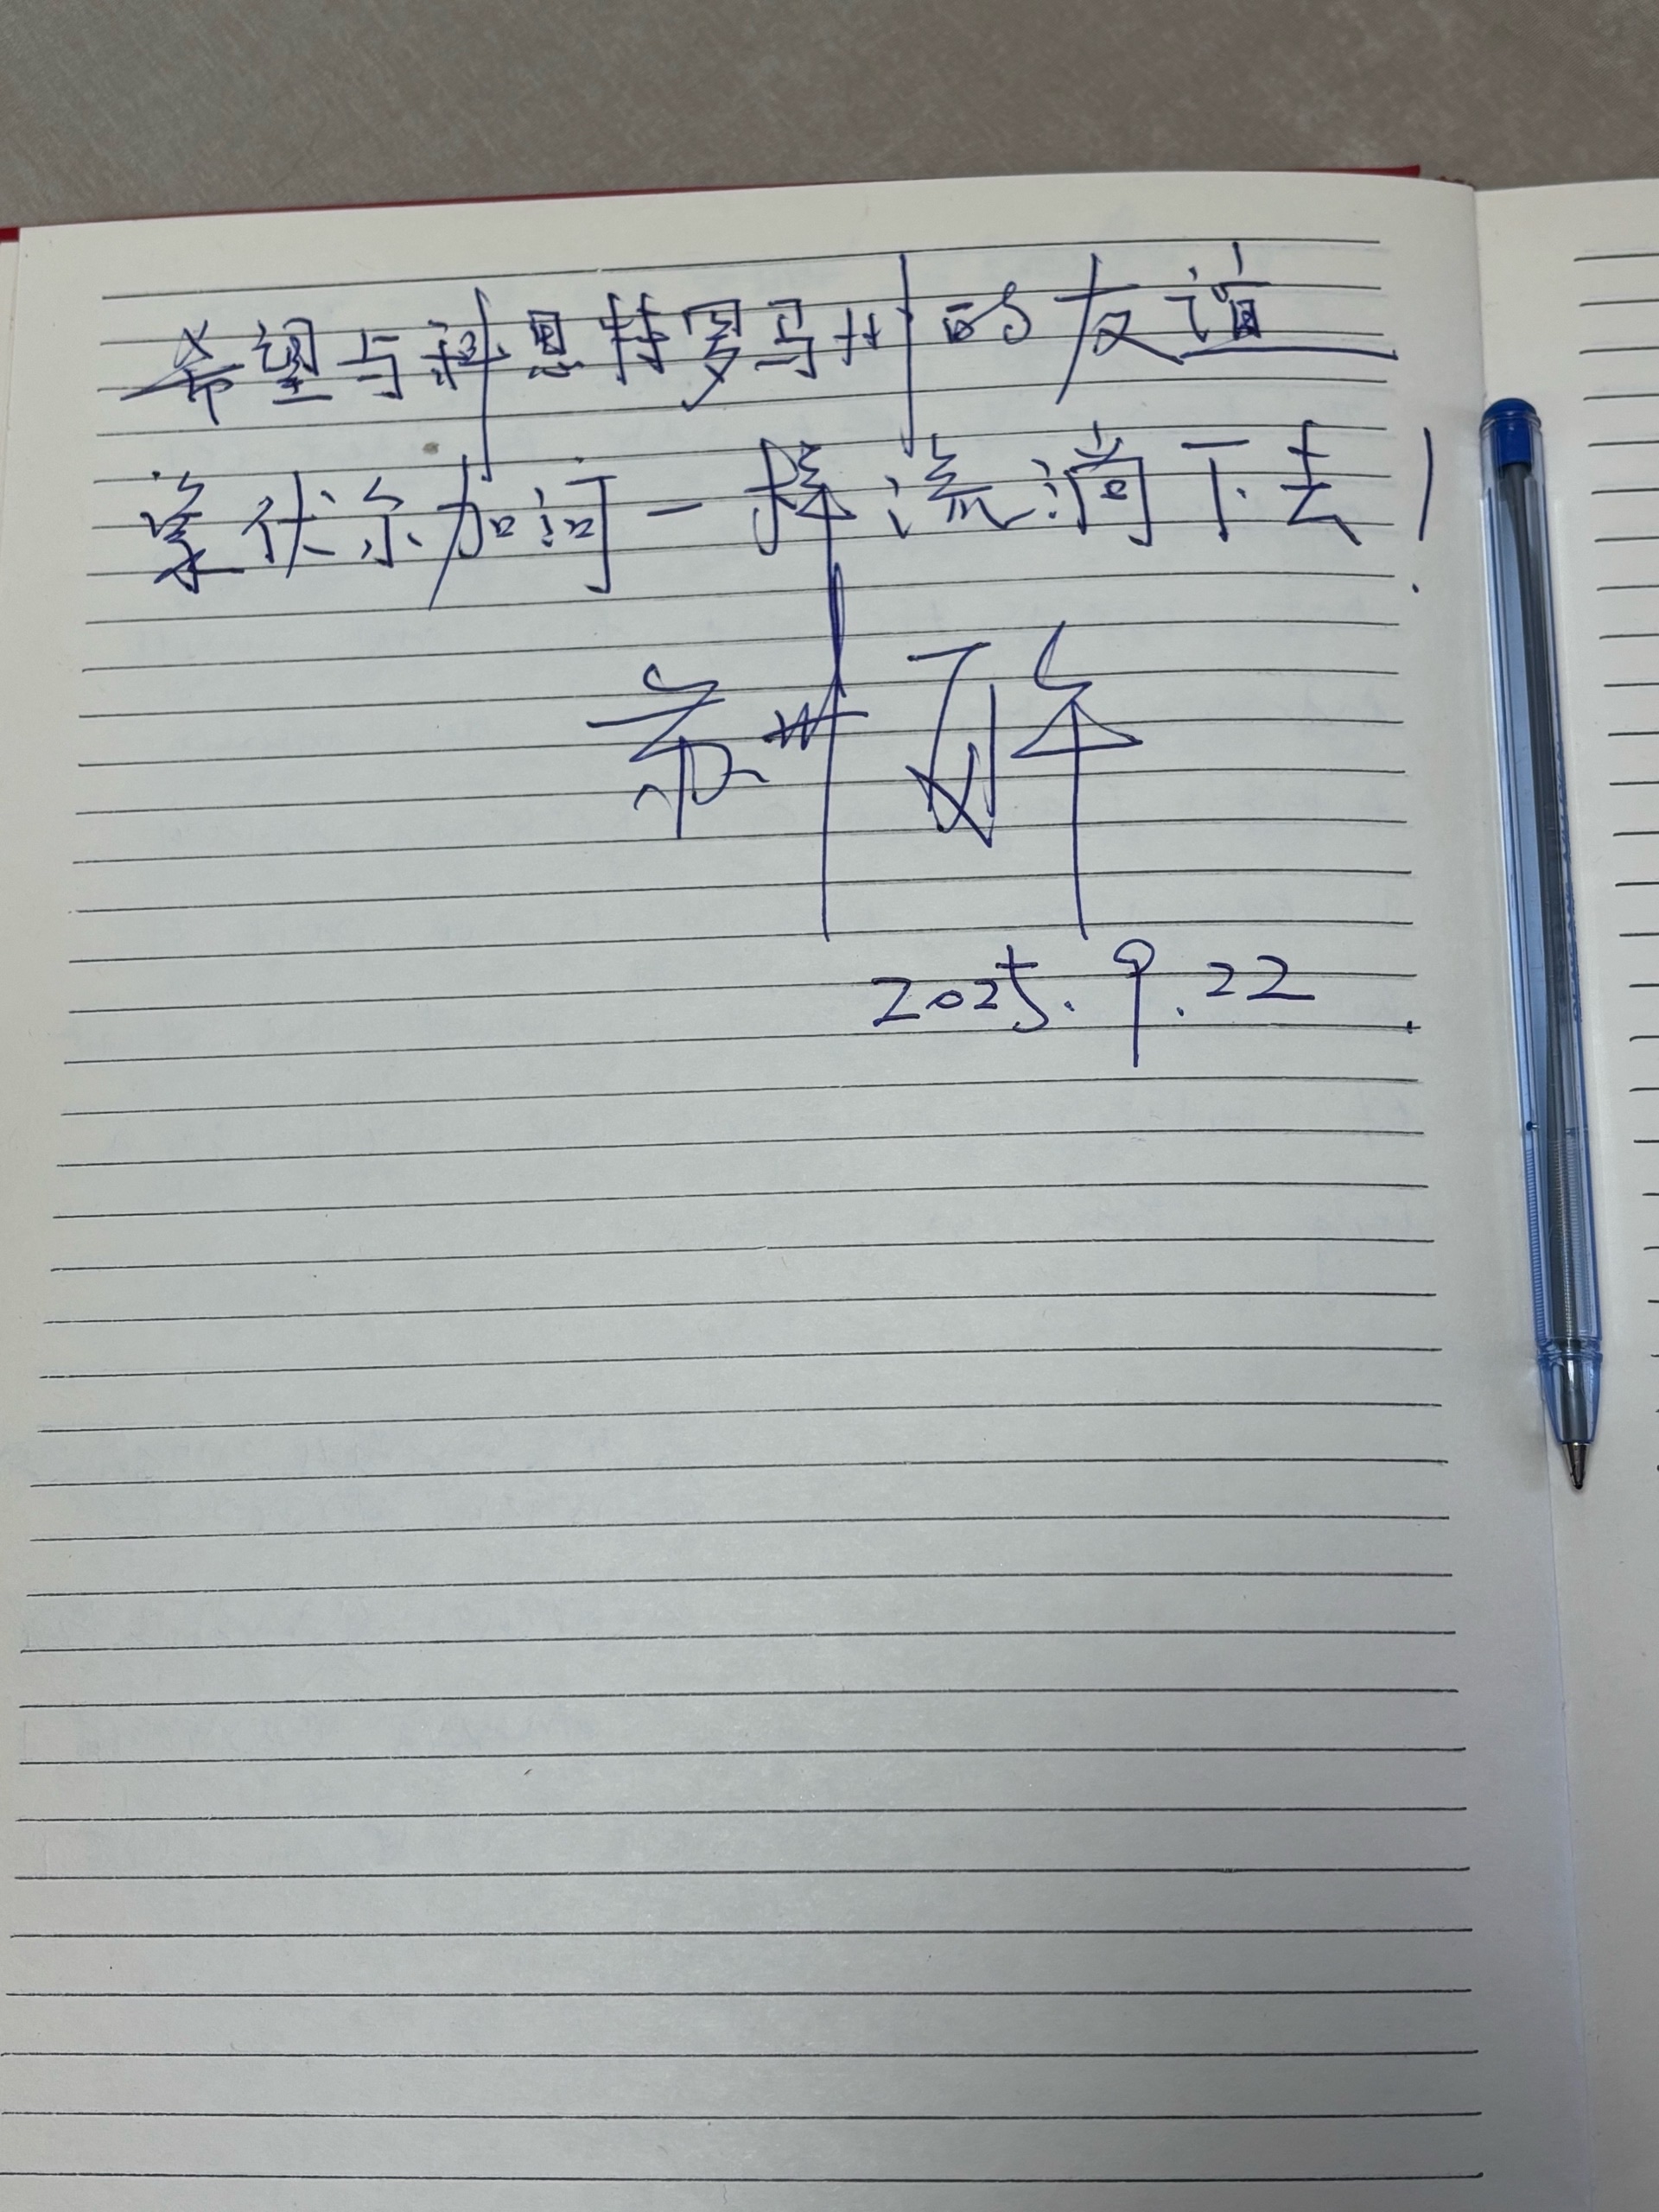 希望与科恩特罗马州的友谊
象伏尔加河一样流淌下去!
2025.9.22